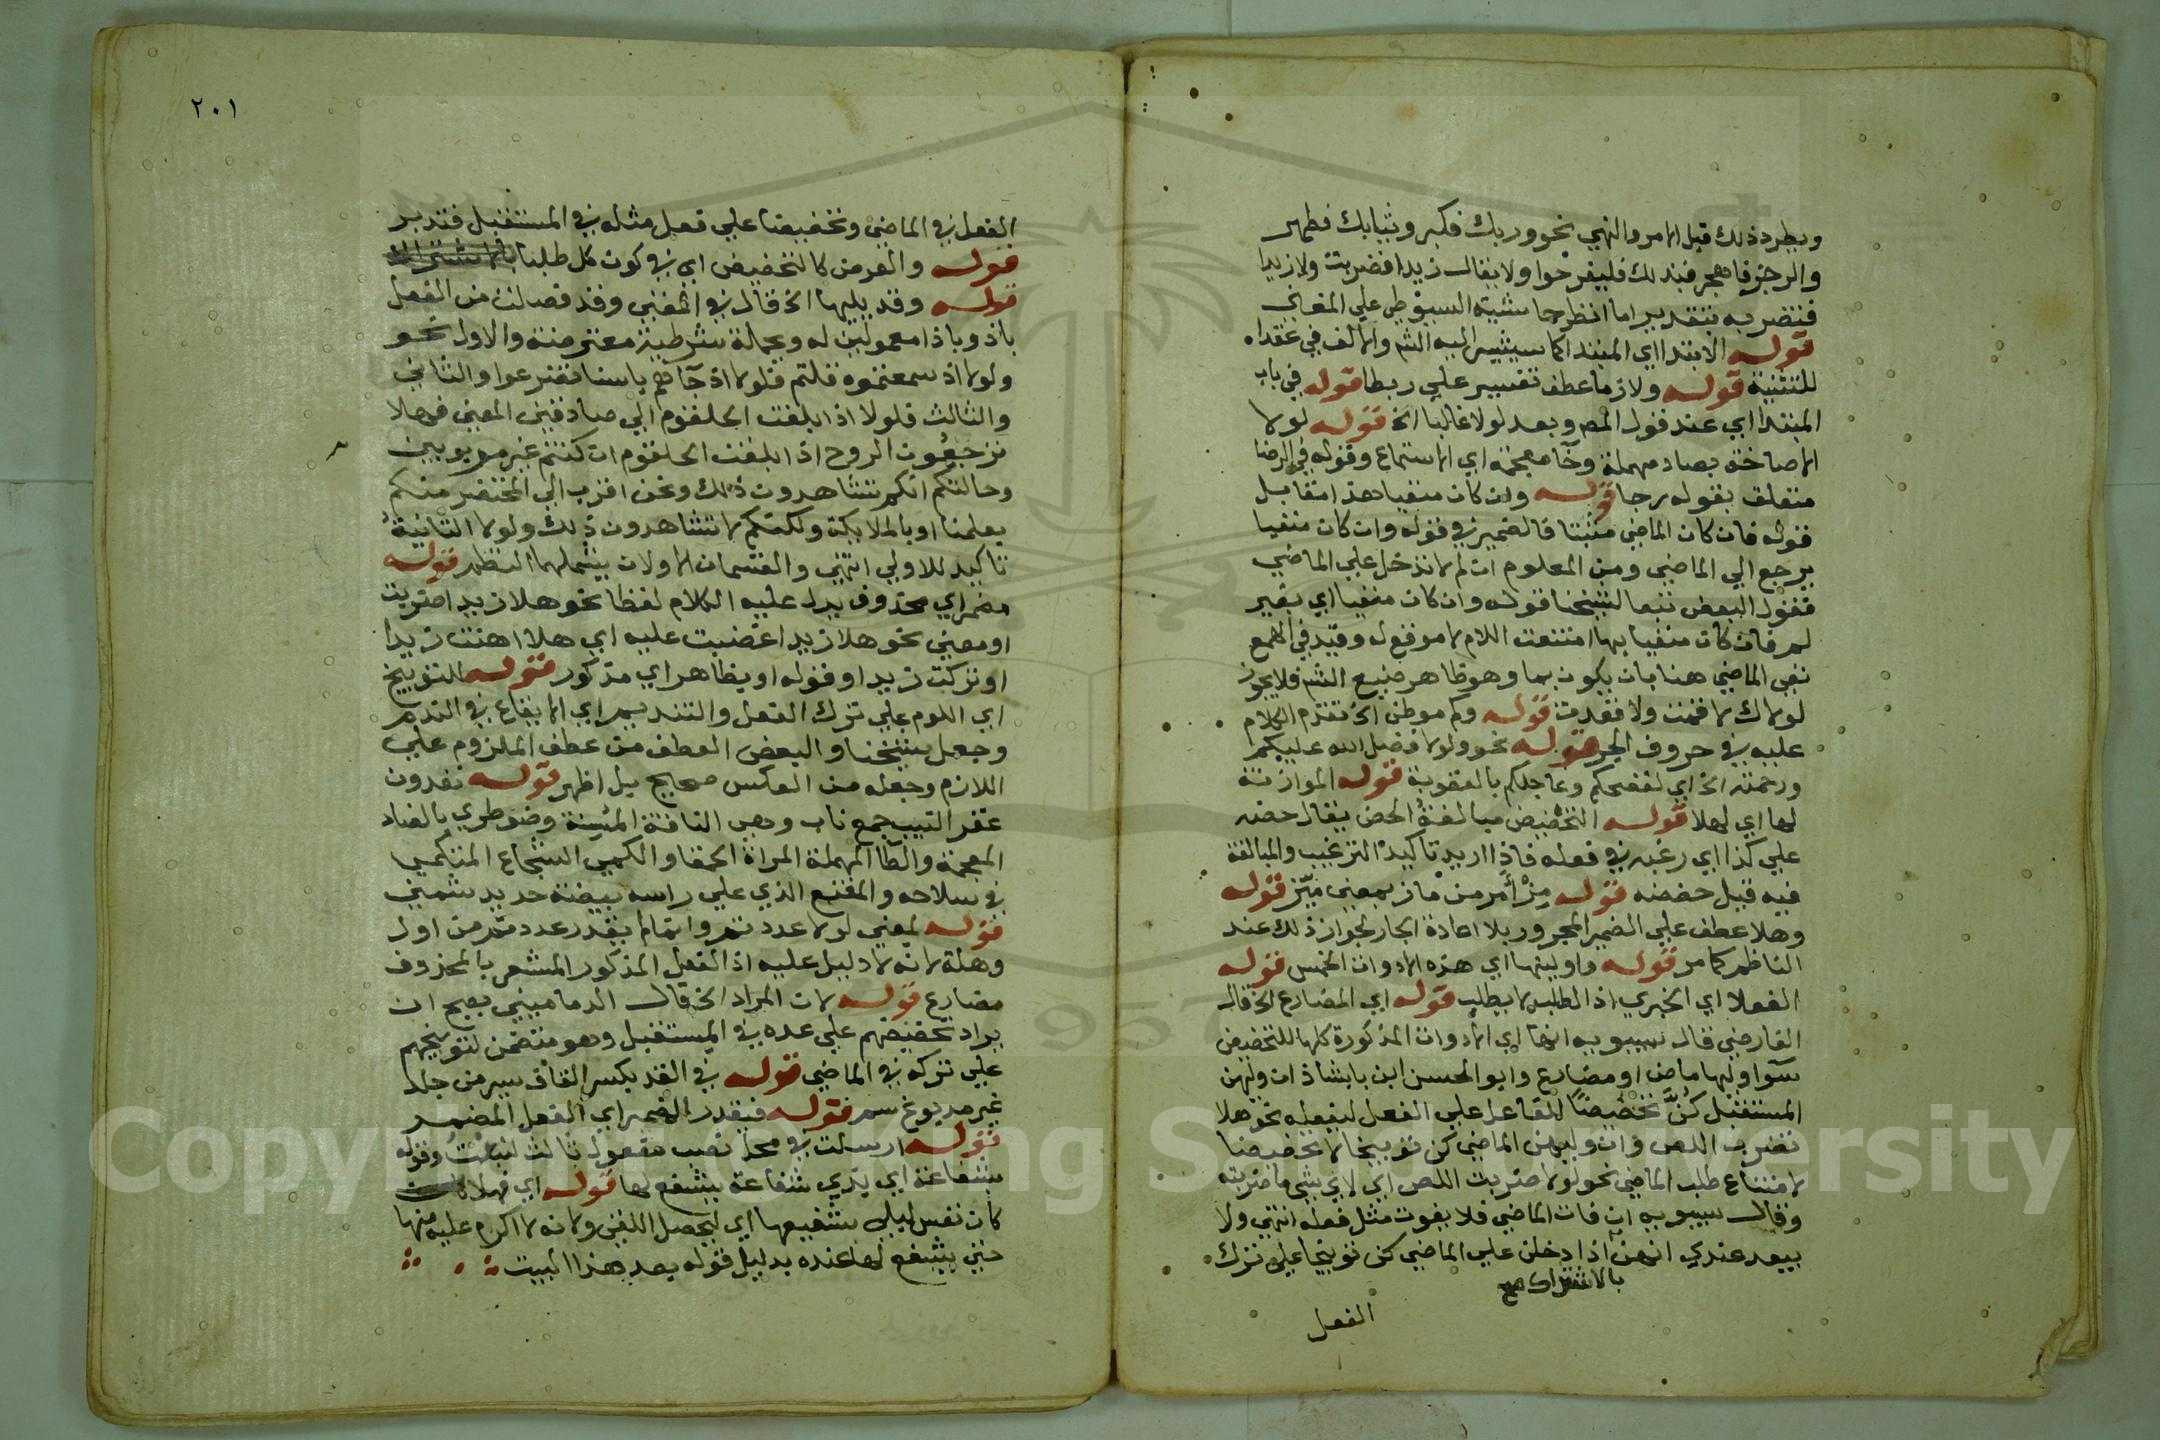 ويطرد ذلك قبل الامر والنهي نحو وربك فكبر وثيابك فطهر
والرجز فاهجر فبذلك فليفرحوا ولا يقال زيدا فضربت ولا زيدا
فتضربه بتقدير اما انظر حاشية السيوطي علي المغني
قوله الابتدا اي المبتدا كما سيشير اليه الشم والالف في عقدا
للتثنية قوله ولازما عطف تفسير علي ربطا قوله في باب
المبتدا اي عند قول المص وبعد لولا غالبا الخ قوله لولا
الاصاخة بصاد مهملة وخا معجمة اي الاستماع وقوله في الرضا
متعلق بقوله رجا قوله وان كان منفيا هذا مقابل
قوله فان كان الماضي مثبتا فالضمير في قوله وان كان منفيا
يرجع الي الماضي ومن المعلوم ان لم لا تدخل علي الماضي
فقول البعض تبعا لشيخنا قوله وان كان منفيا اي بغير
لم فان كان منفيا بها امتنعت اللام لا موقع له وقيد في الهمع
نفي الماضي هنا بان يكون بما وهو ظاهر صنيع الشم فلا يجوز
لولاك لا قمت ولا قعدت قوله وكم موطن الخ تقدم الكلام
عليه في حروف الجر قوله نحو ولولا فضل الله عليكم
ورحمته الخ اي لفضحكم وعاجلكم بالعقوبة قوله الموازنة
لها اي لهلا قوله التحضيض مبالغة الحض يقال حضه
علي كذا اي رغبه في فعله فاذا اريد تاكيد الترغيب والمبالغة
فيه قيل حضضه قوله مز أمر من ماز بمعني ميّز قوله
وهلا عطف علي الضمير المجرور بلا اعادة الجار لجواز ذلك عند
الناظم كما مر قوله واولينها اي هذه الادوات الخمس قوله
الفعلا اي الخبري اذ الطلب لا يطلب قوله اي المضارع الخ قال
الفارضي قال سيبويه انها اي الادوات المذكورة كلها للتحضيض
سوآ وليها ماض او مضارع وابو الحسن ابن بابشاذ ان وليهن
المستقبل كنّ تحضيضا للفاعل علي الفعل ليفعله نحو هلا
تضرب اللص وان وليهن الماضي كن توبيخا لا تحضيضا
لامتناع طلب الماضي نحو لولا ضربت اللص اي لاي شي ما ضربته
وقال سيبويه ان فات الماضي فلا يفوت مثل فعله انتهي ولا
يبعد عندي انهن اذا دخلن علي الماضي كن توبيخا علي ترك
بالاشتراك صح
الفعل
٢٠١
الفعل في الماضي وتحضيضا علي فعل مثله في المستقبل فتدبر
قوله والعرض كالتحضيض اي في كون كل طلبا
قوله وقد يليها الخ قال في المغني وقد فصلت من الفعل
باذ وباذا معمولين له وبجملة شرطية معترضة والاول نحو
ولولا اذ سمعتموه قلتم فلولا اذ جآهم باسنا تضرعوا والثاني
والثالث فلولا اذا بلغت الحلقوم الي صادقين المعني فهلا
ترجعون الروح اذا بلغت الحلقوم ان كنتم غير مربوبين
وحالتكم انكم تشاهدون ذلك ونحن اقرب الي المحتضر منكم
بعلمنا او بالملايكة ولكنكم لا تشاهدون ذلك ولولا الثانية
تاكيد للاولي انتهي والقسمان الاولان يشملهما النظم قوله
مضمر اي محذوف يدل عليه الكلام لفظا نحو هلا زيدا ضربت
او معني نحو هلا زيدا غضبت عليه اي هلا اهنت زيدا
او تركت زيدا وقوله او بظاهر اي مذكور قوله للتوبيخ
اي اللوم علي ترك الفعل والتنديم اي الايقاع في الندم
وجعل شيخنا والبعض العطف من عطف الملزوم علي
اللازم وجعله من العكس صحيح بل اظهر قوله تعدون
عقر النيب جمع ناب وهي الناقة المسنة وضوطري بالضاد
المعجمة والطا المهملة المراة الحمقا والكمي الشجاع المتكمي
في سلاحه والمقنع الذي علي راسه بيضة حديد شمني
قوله لمعني لولا عددتم وانما لم يقدر عددتم من اول
وهلة لانه لا دليل عليه اذ الفعل المذكور المشعر بالمحذوف
مضارع قوله لان المراد الخ قال الدماميني يصح ان
يراد تحضيضهم علي عده في المستقبل وهو متضمن لتوبيخهم
علي تركه في الماضي قوله في القد بكسر القاف سير من جلد
غير مدبوغ سم قوله فيقدر الضمير اي الفعل المضمر
قوله ارسلت في محل نصب مفعول ثالث لنبئت وقوله
بشفاعة اي بذي شفاعة يشفع لها قوله اي فهلا
كان نفس ليلي شفيعها اي ليحصل اللقي ولانه لا اكرم عليه منها
حتي يشفع لها عنده بدليل قوله بعد هذا البيت